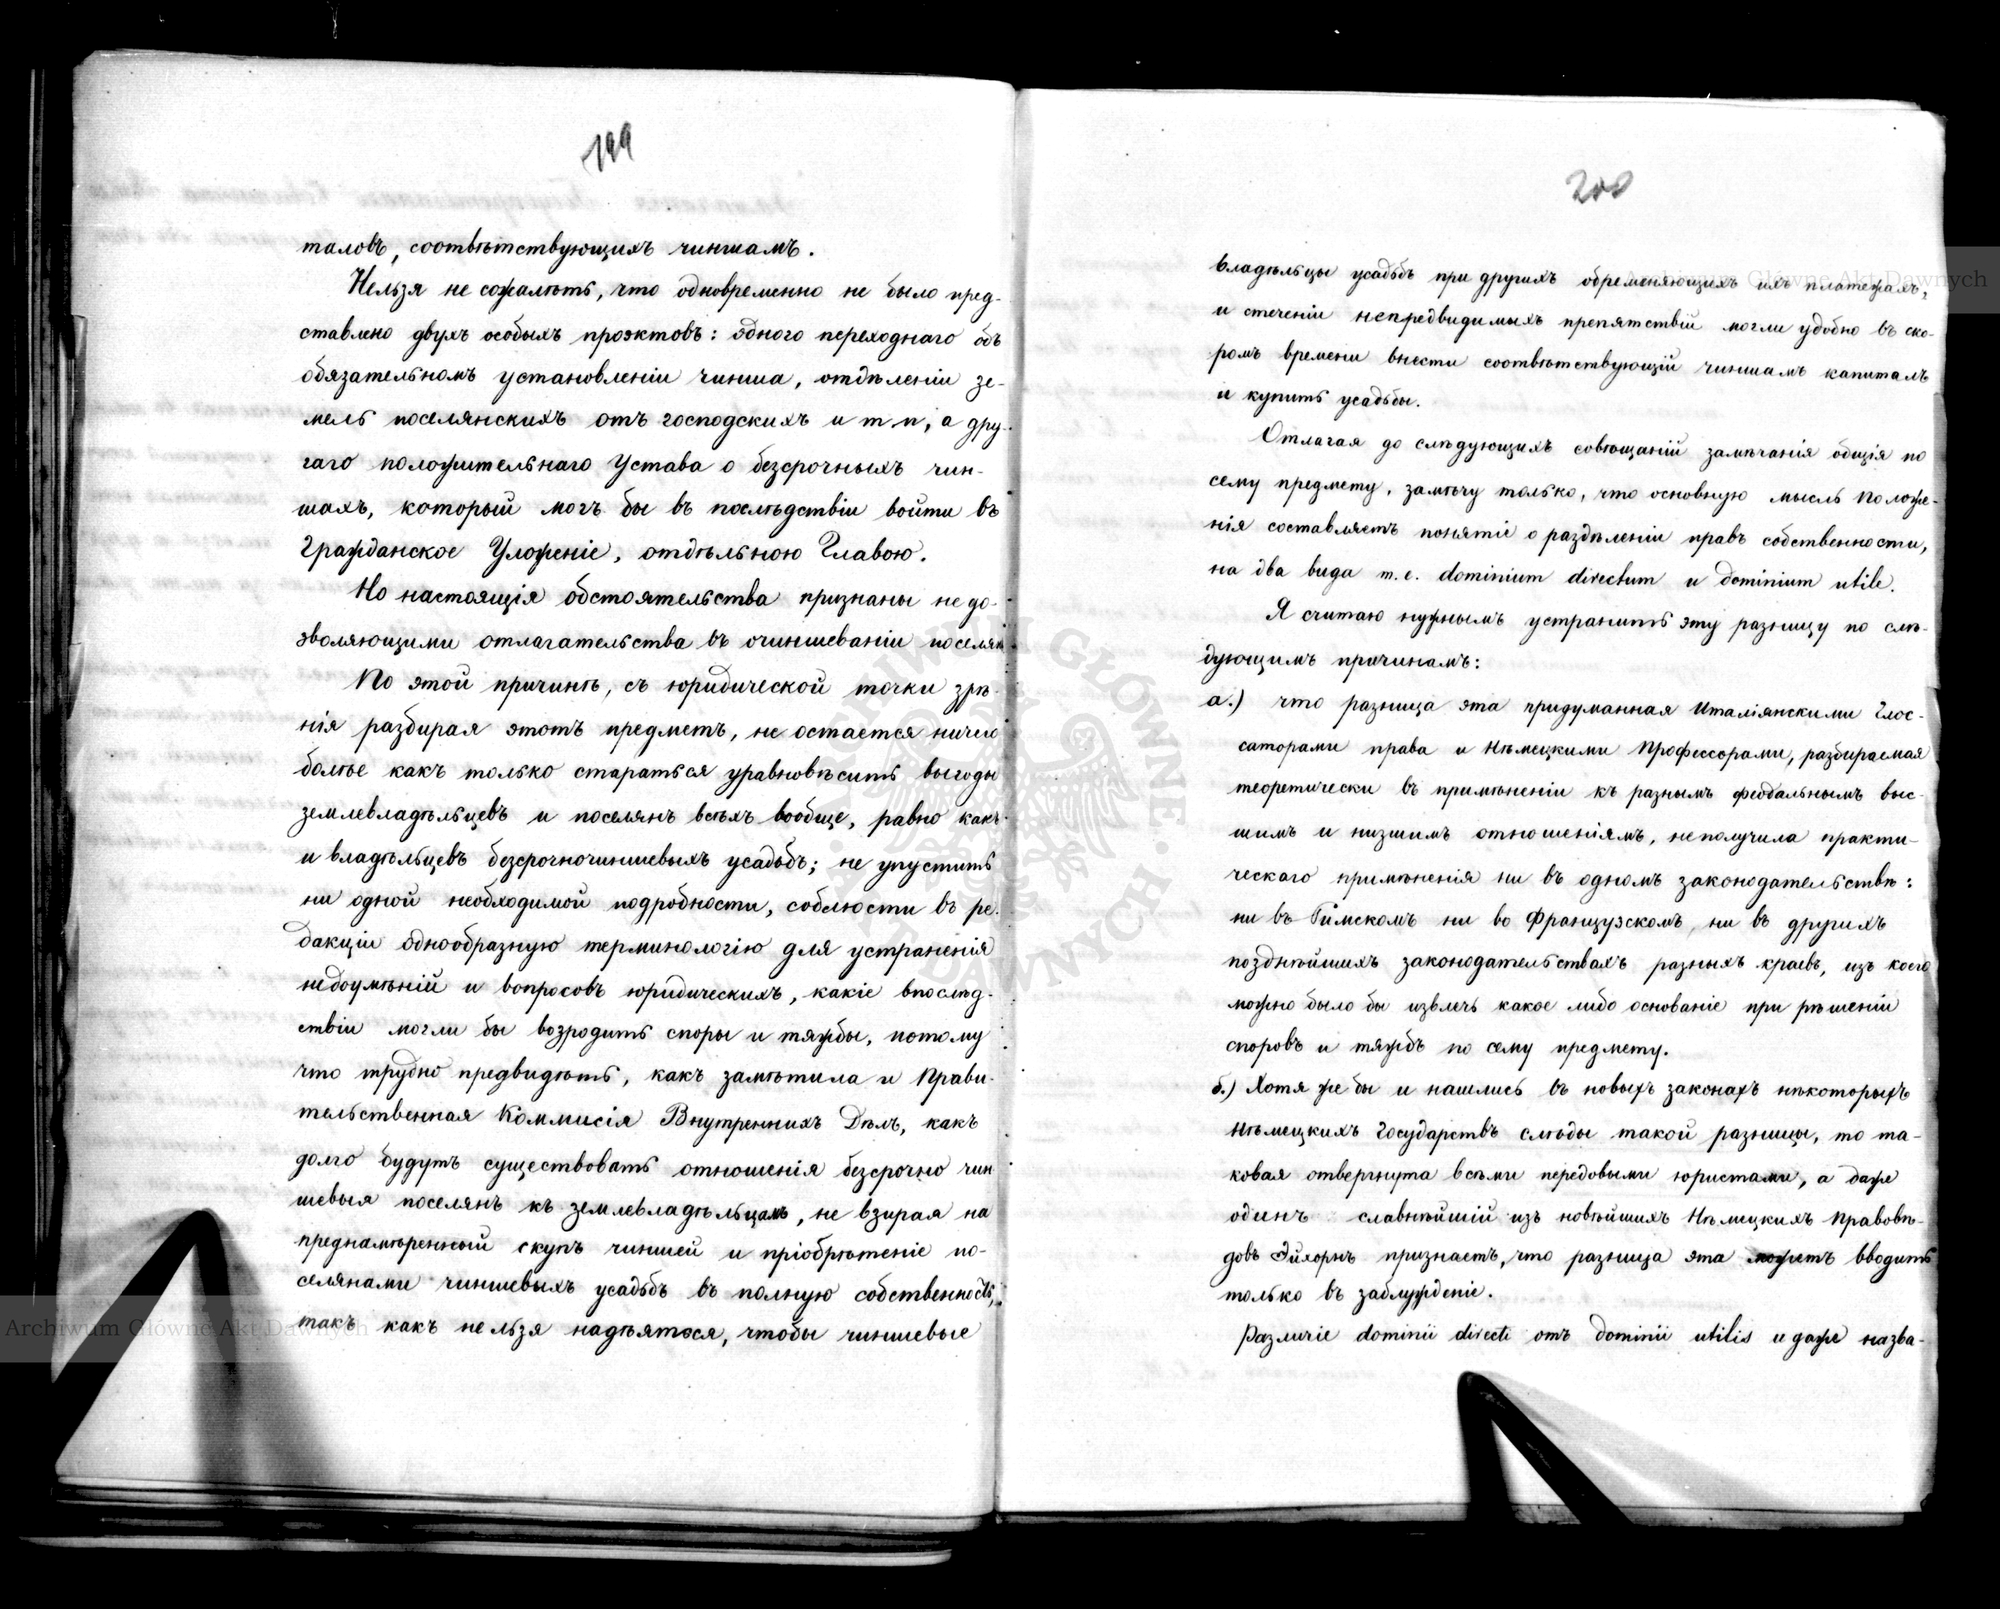 199
таловъ, соотвѣтствующихъ чиншамъ.
Нельзя не сожалѣть, что одновременно не было пред-
ставлено двухъ особыхъ проэктовъ: одного переходнаго объ
обязательномъ установленіи чинша, отдѣленіи зе-
мель поселянскихъ отъ господскихъ и т п, а дру-
гаго положительнаго Устава о безсрочныхъ чин-
шахъ, который могъ бы въ послѣдствіи войти въ
Гражданское Уложеніе, отдѣльною Главою.
Но настоящія обстоятельства признаны не до-
зволяющими отлагательства въ очиншеваніи поселян
По этой причинѣ, съ юридической точки зрѣ-
нія разбирая этотъ предметъ, не остается ничего
болѣе какъ только стараться уравновѣсить выгоды
землевладѣльцевъ и поселянъ всѣхъ вообще, равно какъ
и владѣльцевъ безсрочночиншевыхъ усадьбъ; не упустить
ни одной необходимой подробности, соблюсти въ ре-
дакціи однообразную терминологію для устраненія
недоумѣній и вопросовъ юридическихъ, какіе впослѣд-
ствіи могли бы возродить споры и тяжбы, потому
что трудно предвидѣть, какъ замѣтила и Прави-
тельственная Коммисія Внутреннихъ Дѣлъ, какъ
долго будутъ существовать отношенія безсрочно чин
шевыя поселянъ къ землевладѣльцамъ, не взирая на
преднамѣренный скупъ чиншей и пріобрѣтеніе по-
селянами чиншевыхъ усадьбъ въ полную собственность,
такъ какъ нельзя надѣятся, чтобы чиншевые
200
владѣльцы усадьбъ при другихъ обременяющихъ ихъ платежахъ,
и стеченіи непредвидимыхъ препятствій могли удобно въ ско-
ромъ времени внести соотвѣтствующій чиншамъ капиталъ
и купить усадьбы.
Отлагая до слѣдующихъ совѣщаній замѣчанія общія по
сему предмету, замѣчу только, что основную мысль Положе-
нія составляетъ понятіе о раздѣленіи правъ собственности,
на два вида т. е. dominium directum и dominium utile.
Я считаю нужнымъ устранить эту разницу по слѣ-
дующимъ причинамъ:
а.) что разница эта придуманная Италіянскими Глос-
саторами права и Нѣмецкими Профессорами, разбираемая
теоретически въ примѣненіи къ разнымъ феодальнымъ выс-
шимъ и низшимъ отношеніямъ, неполучила практи-
ческаго примѣненія ни въ одномъ законодательствѣ:
ни въ Римскомъ ни во Французскомъ, ни въ другихъ
позднѣйшихъ законодательствахъ разныхъ краевъ, изъ коего
можно было бы извлечь какое либо основаніе при рѣшеніи
споровъ и тяжбъ по сему предмету.
б.) Хотя же бы и нашлись въ новыхъ законахъ нѣкоторыхъ
Нѣмецкихъ Государствъ слѣды такой разницы, то та-
ковая отвергнута всѣми передовыми юристами, а даже
одинъ славнѣйшій изъ новѣйшихъ Нѣмецкихъ Правовѣ-
довъ Эйхорнъ признаетъ, что разница эта можетъ вводить
только въ заблужденіе.
Различіе dominii directi отъ dominii utilis и даже назва-
Archiwum Główne Akt Dawnych
Archiwum Główne Akt Dawnych